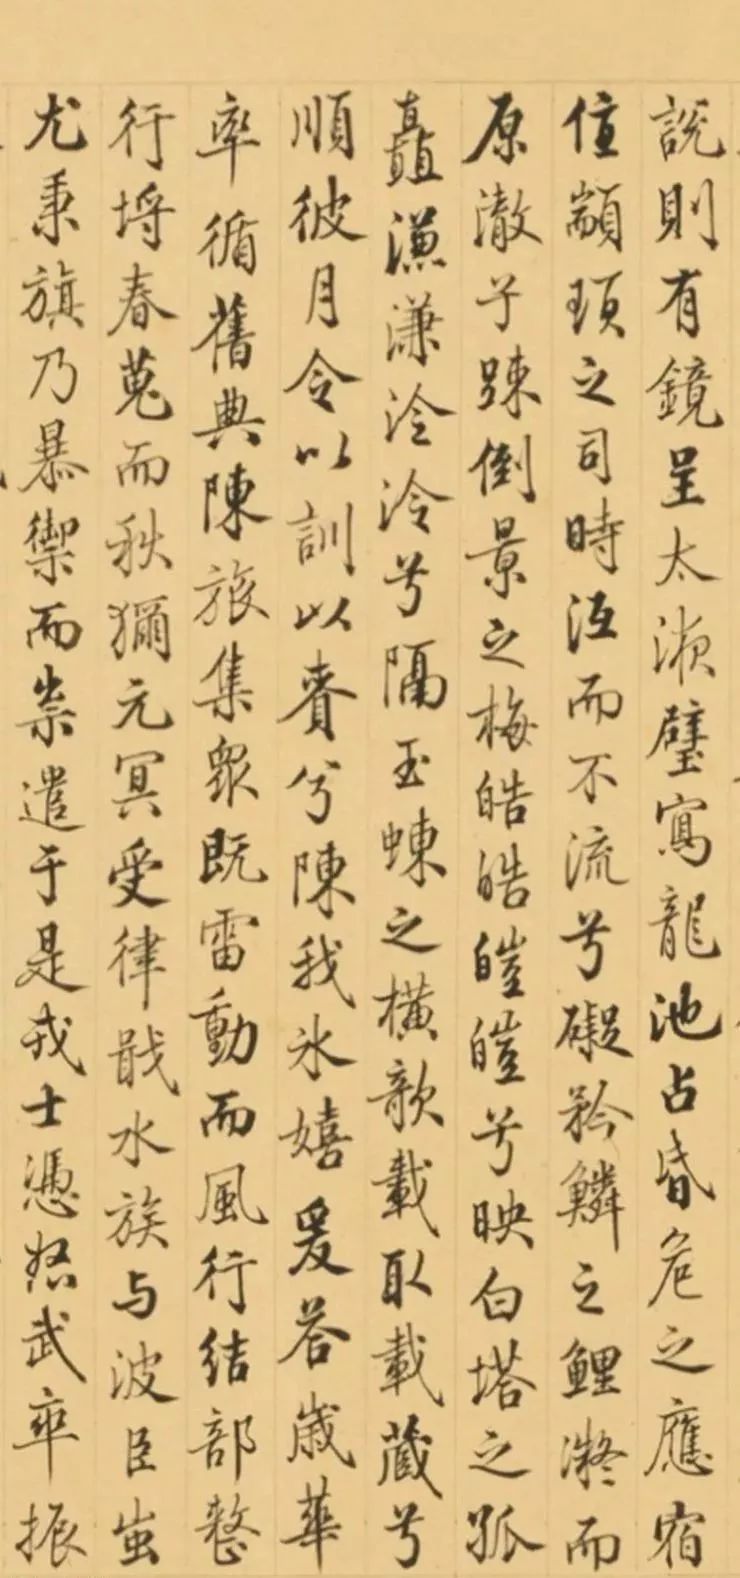 說則有鏡呈太液璧寫龍池占昏危之應宿
值顓頊之司時沍而不流兮礙矜鱗之鯉凝而
原澈兮踈倒景之梅皓皓皚皚兮映白塔之孤
矗濂濂泠泠兮隔玉蝀之橫歌載取載藏兮
順彼月令以訓以賚兮陳我氷嬉爰荅歲華
率循舊典陳旅集衆既雷動而風行結部整
行埒春蒐而秋獮元冥受律戢水族与波臣蚩
尤秉旗乃暴禦而祟遣于是戎士憑怒武卒振